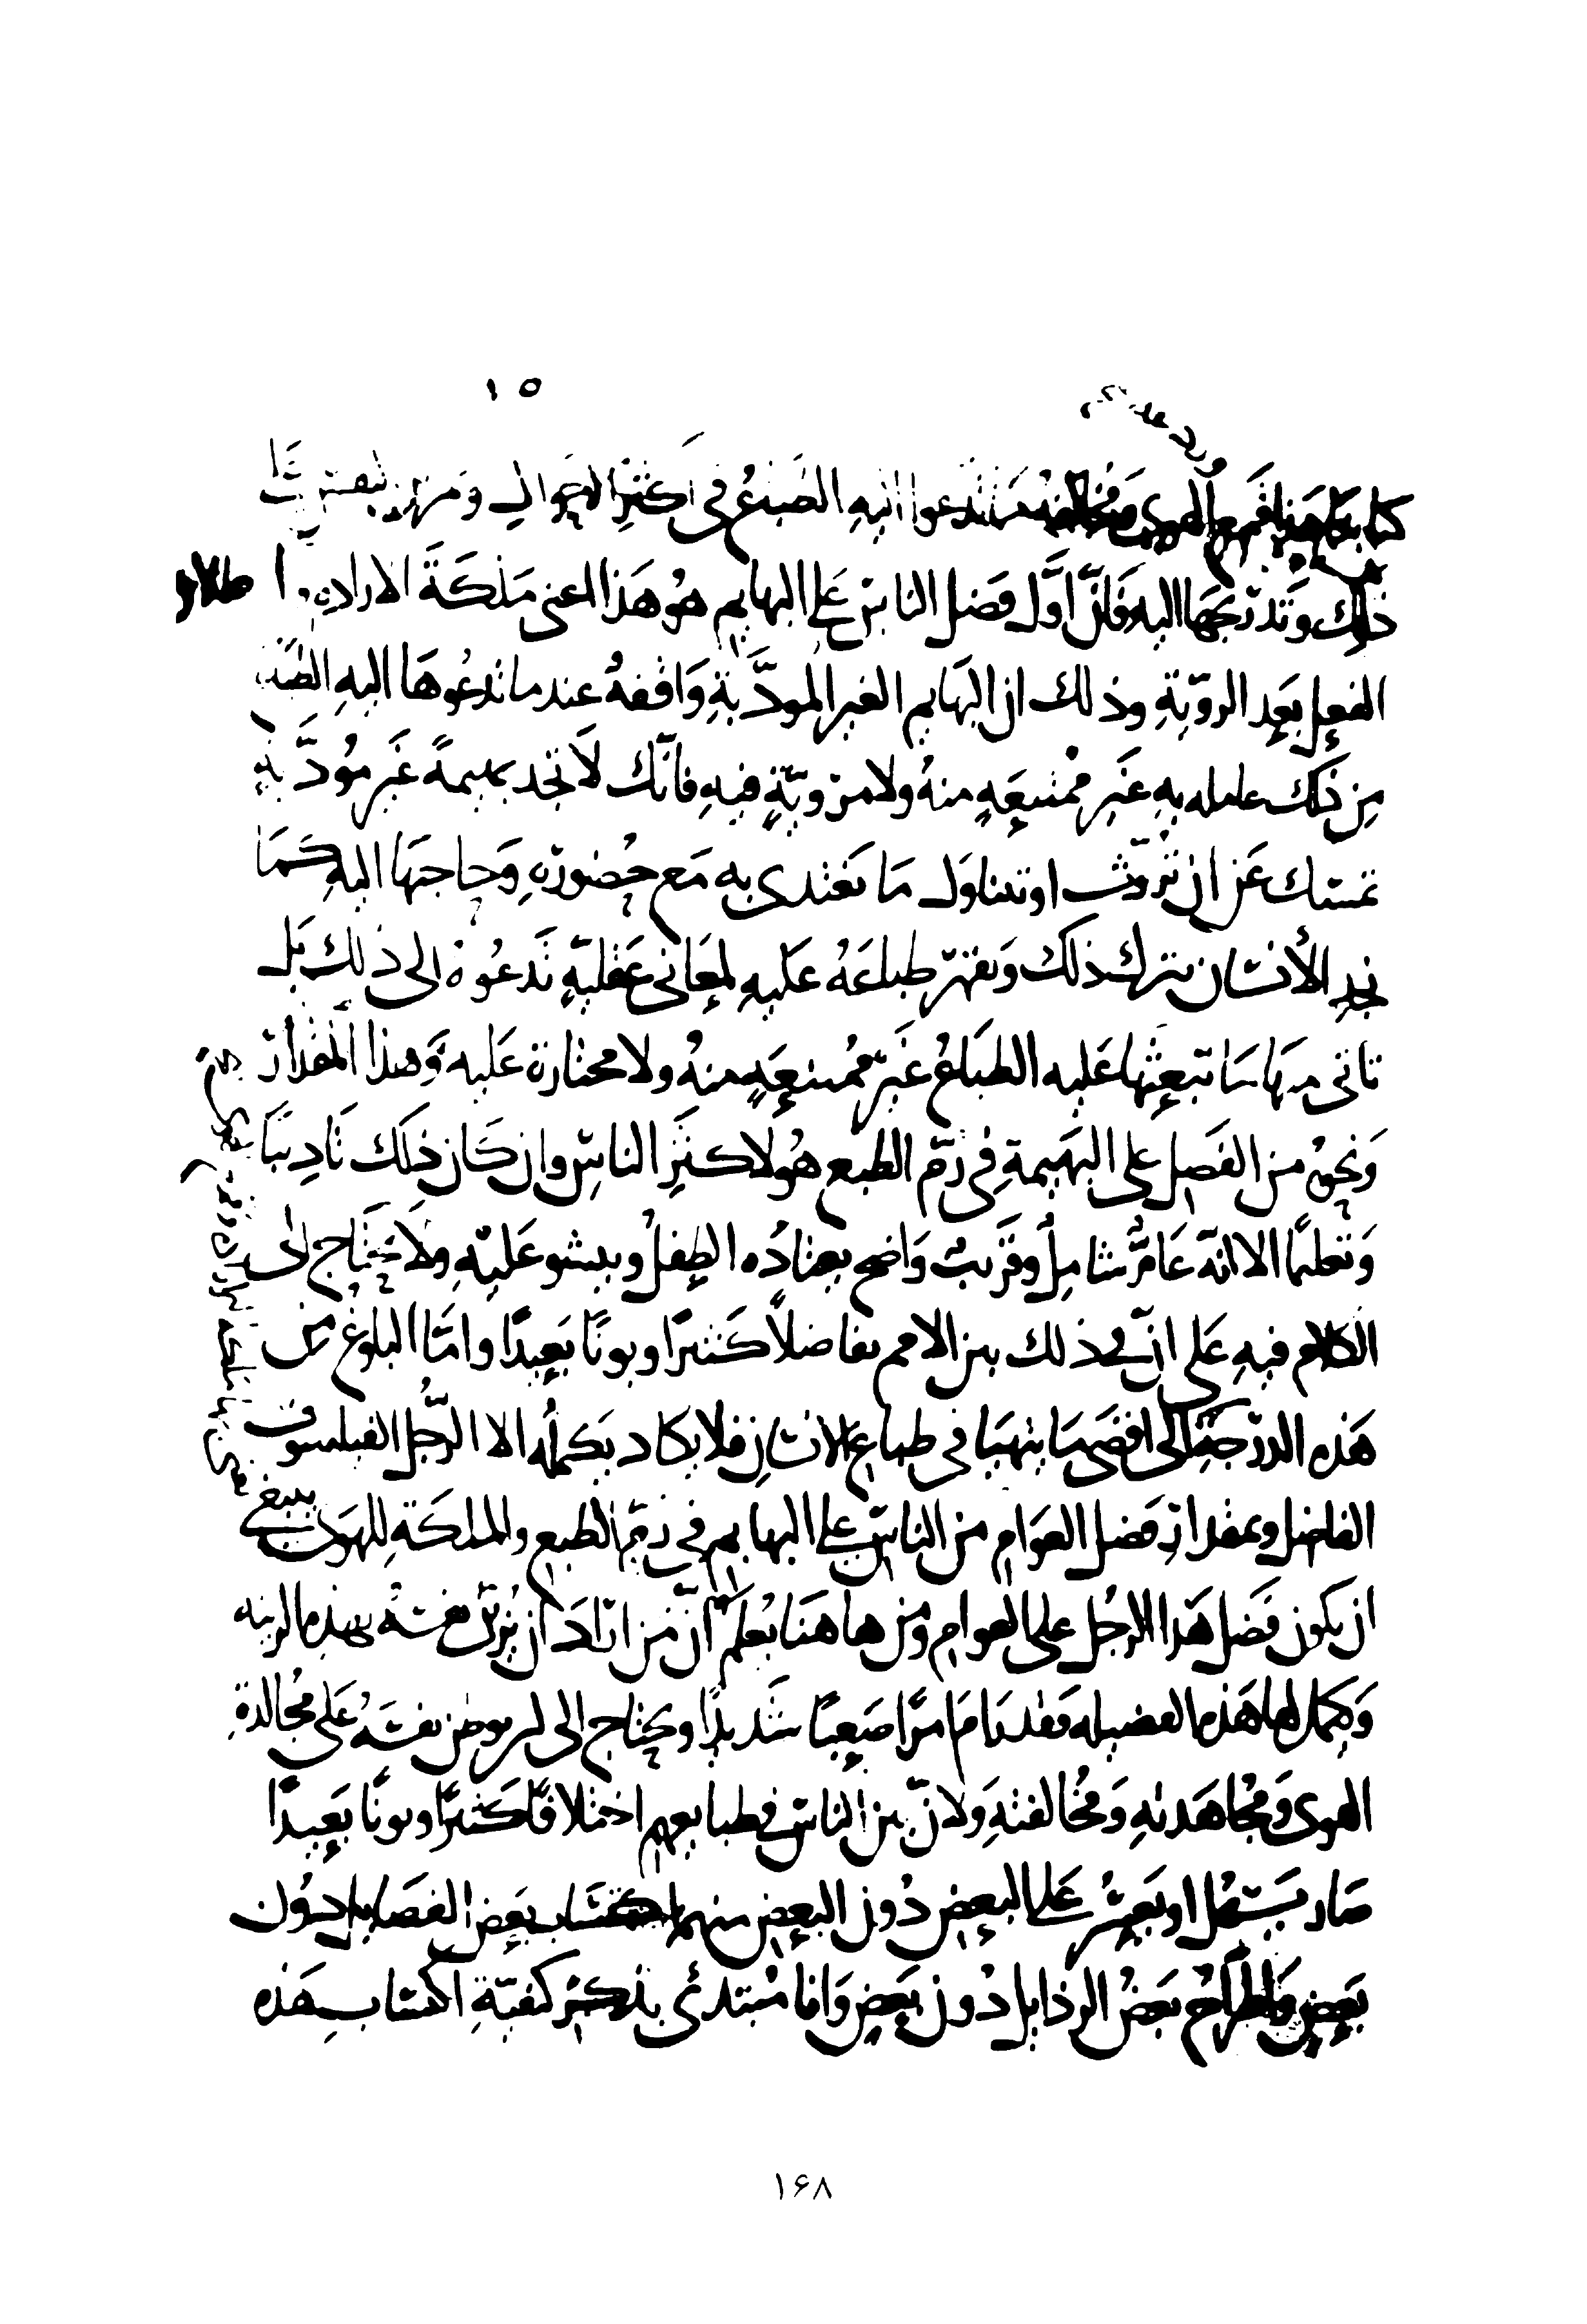 ١٥
كتابنا هذا قمع الهوى ومخالفة ما تدعوا اليه الطباع في اكثر الاحوال وتمرين النفس على
ذلك وتدريجها اليه فان اول فضل الناس على البهايم هو هذا المعنى ملكة الارادة واطلاق
الفعل بعد الروية وذلك ان البهايم الغير المودبة واقفة عند ما تدعوها اليه الطباع
من ذلك عامله به غير ممتنعة منه ولا مروية فيه فانك لا تجد بهيمة غير مودبة
تمسك عن ان تروث او تتناول ما تغتدى به مع حضوره وحاجتها اليه كما
نجد الانسان يترك ذلك ويقهر طباعه عليه لمعاني عقلية تدعوه الى ذلك بل
تاتي منها ما تبعثها عليه الطباع غير ممتنعة منه ولا مختارة عليه وهذا المقدار
ونحوه من الفضل على البهيمة في زم الطبع هو لاكثر الناس وان كان ذلك تاديبا
وتعليما الا انه عام شامل وقريب واضح يعتاده الطفل وينشو عليه ولا يحتاج الى
الكلام فيه على ان في ذلك بين الامم تفاضلا كثيرا وبونا بعيدا واما البلوغ من
هذه الدرجة الى اقصى ما يتهيا في طباع الانسان فلا يكاد يكمله الا الرجل الفيلسوف
الفاضل وبمقدار فضل العوام من الناس على البهايم في زم الطبع والملكة للهوى ينبغي
ان يكون فضل هذا الرجل على العوام ومن هاهنا يعلم ان من اراد ان يزين نفسه بهذه الزينه
ويكمل لها هذه الفضيله فقد رام امرا صعبا شديدا ويحتاج الى ان يوطن نفسه على مجالدة
الهوى ومجاهدته ومخالفته ولان بين الناس في طبايعهم اختلافا كثيرا وبونا بعيدا
صار يسهل او يعسر على البعض دون البعض منهم اكتساب بعض الفضايل دون
بعض واطراح بعض الرذايل دون بعض وانا مبتدئ بذكر كيفية اكتساب هذه
١۶٨